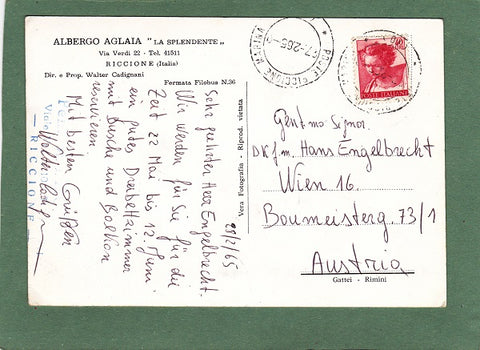 ALBERGO AGLAIA "LA SPLENDENTE"
Via Verdi 22 - Tel. 41511
RICCIONE (Italia)
Dir. e Prop. Walter Cadignani
Fermata Filobus N.36
28/2/65
Sehr geehrter Herr Engelbrecht.
Wir werden für Sie für die
Zeit 22 Mai bis 12 Juni
ein gutes Dreibettzimmer
mit Dusche und Balkon
reservieren.
Mit besten Grüßen
RICCIONE
Vera Fotografia - Riprod. vietata
POSTE RICCIONE MARINA
POSTE ITALIANE
Gent.mo Signor
DKfm. Hans Engelbrecht
Wien 16
Boumeisterg. 73/1
Austria
Gattei - Rimini